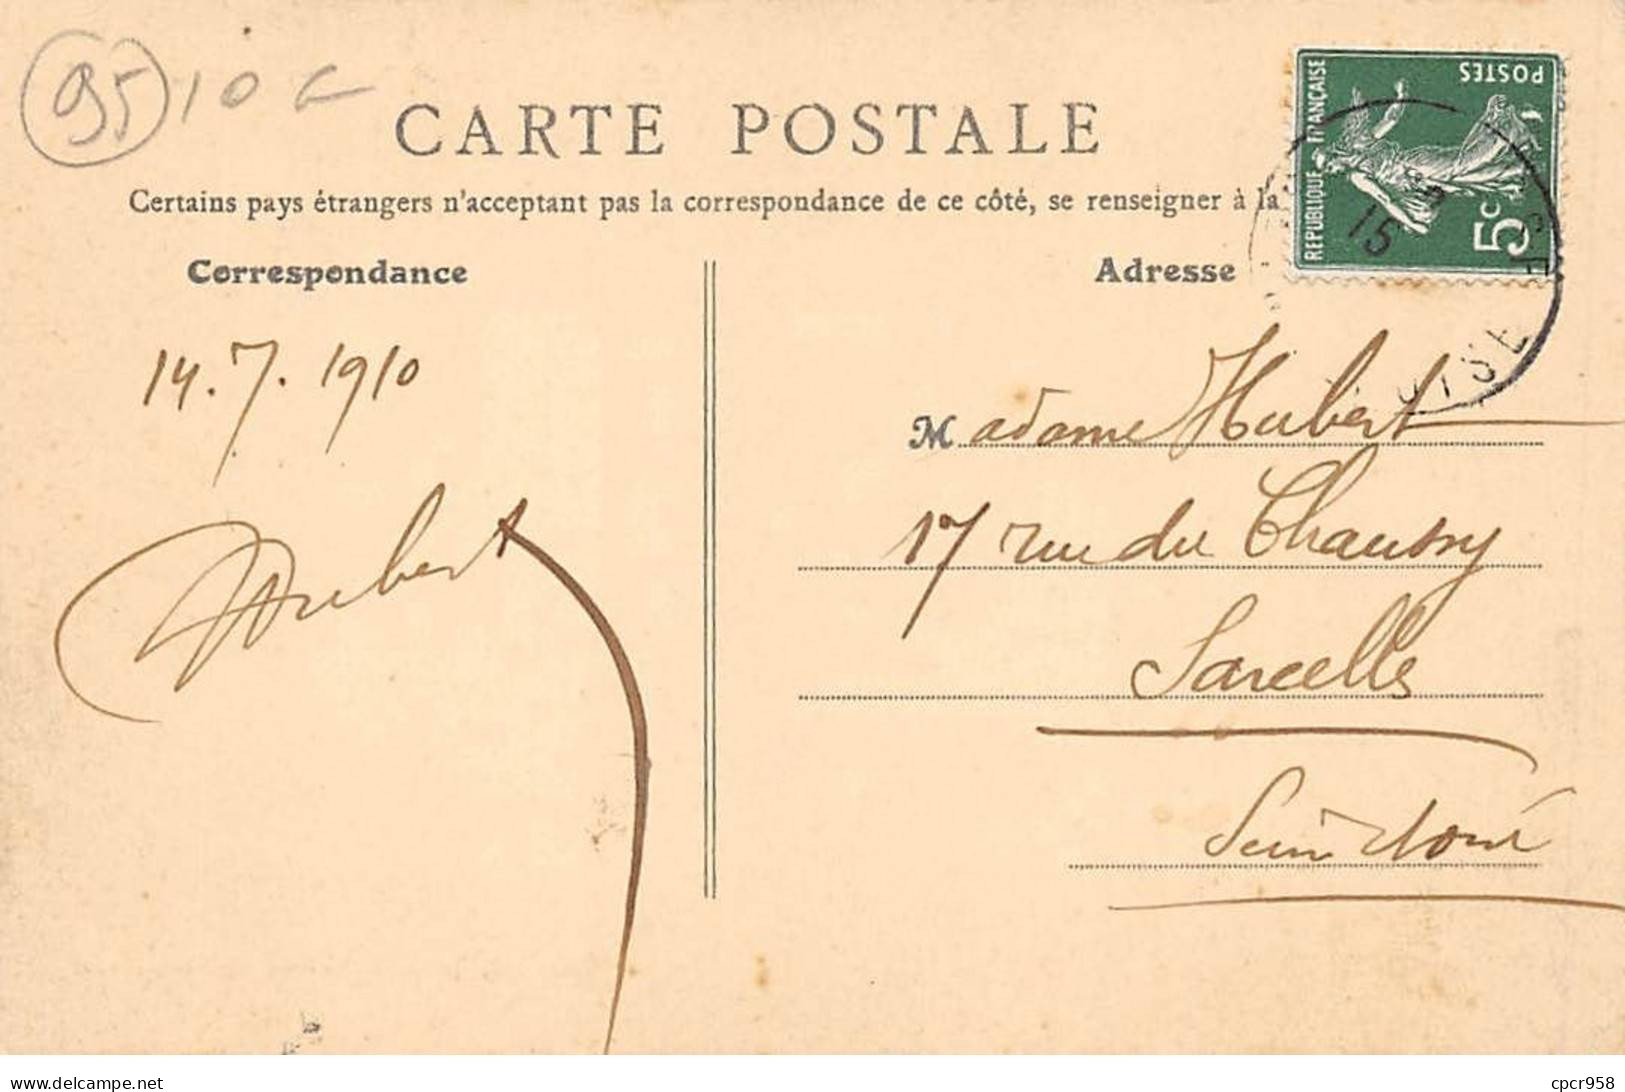 95 10 €
CARTE POSTALE
Certains pays étrangers n'acceptent pas la correspondance de ce côté, se renseigner à la
Correspondance
Adresse
REPUBLIQUE FRANÇAISE
POSTES
5c
15
OISE
14.7.1910
Hubert
Madame Hubert
17 rue du Chaussy
Sarcelles
Seine et Oise
www.delcampe.net
cpcr958